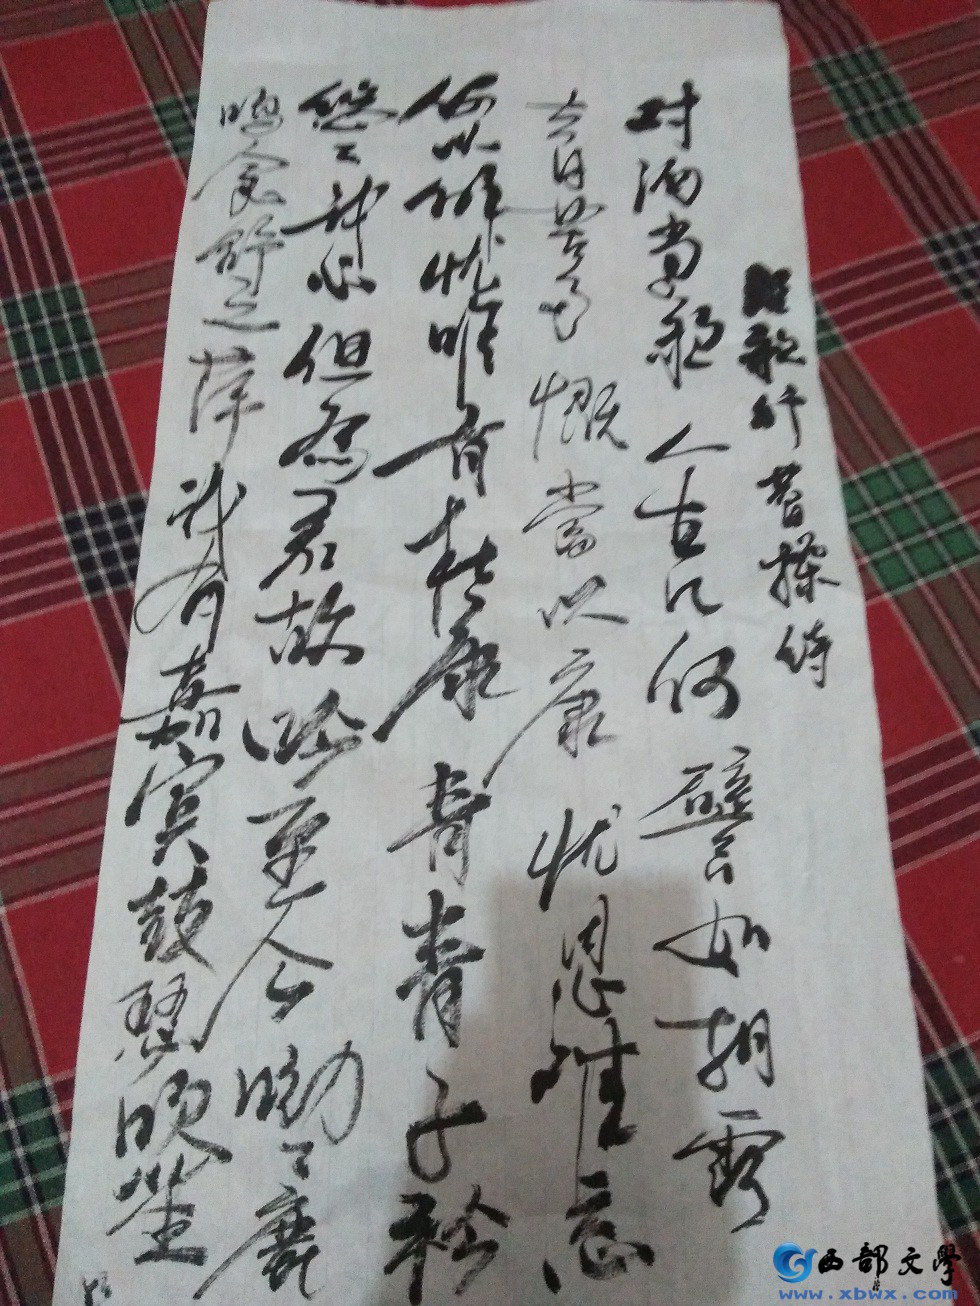 短歌行 曹操 诗
对酒当歌 人生几何 譬如朝露
去日苦多 慨當以康 忧思难忘
何以解忧 唯有杜康 青青子衿
悠々我心 但为君故 吟至今 呦々鹿
鸣食野之萍 我有嘉宾 鼓瑟吹笙
西部文學
www.xbwx.com